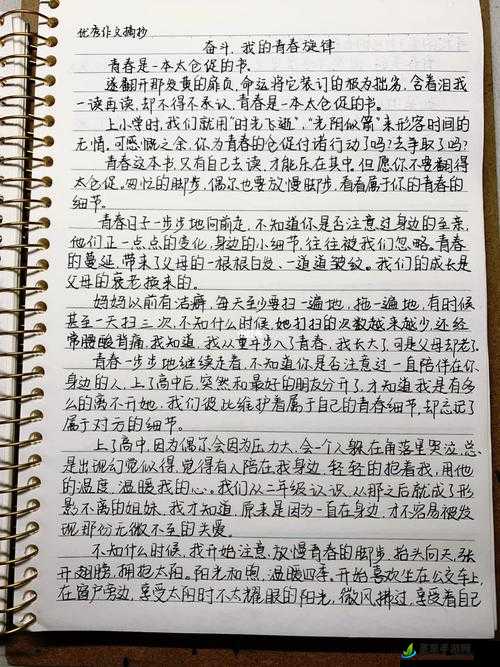 优秀作文摘抄
奋斗,我的青春旋律
青春是一本太仓促的书.
遂翻开那发黄的扉页,命运将它装订的极为拙劣,含着泪我
一读再读,却不得不承认,青春是一本太仓促的书。
上小学时,我们就用"时光飞逝","光阴似箭"来形容时间的
无情,可感慨之余,你为青春的仓促付诸行动了吗?去争取了吗?
青春这本书,只有自己去读,才能乐在其中,但愿你不要翻得
太仓促。匆忙的脚步,偶尔也要放慢脚步,看看属于你的青春的
细节。
青春日子一步步地向前走,不知道你是否注意过身边的至亲,
他们正一点点的变化,身边的小细节,往往被我们忽略。青春
的蔓延,带来了父母的一根根白发、一道道皱纹。我们的成长是
父母的衰老换来的。
妈妈以前有洁癖,每天至少要扫一遍地,拖一遍地,有时候
甚至一天扫三次,不知什么时候,她打扫的次数越来越少,还经
常腰酸背痛,我知道,我从童年步入了青春,我长大了,可是父母却老了
青春一步步地继续走着,不知道你是否注意过一直陪伴在你
身边的人,上了高中后,突然和最好的朋友分开了,才知道我是有多
么的离不开她,我们彼此维护着属于自己的青春细节,却忘记了
属于对方的细节。
上了高中,因为偶尔会因为压力大,会一个人躲在角落里哭泣,总
是出现幻觉似得,觉得有人陪在我身边,轻轻的抱着我,用他
的温度,温暖我的心。我们从二年级认识,从那之后就成了形
影不离的姐妹,我才知道,原来是因为一直在身边,才不容易被发
现那份无微不至的关爱。
不知什么时候,我开始注意,放慢青春的脚步,抬头向天,张
开翅膀,拥抱太阳。阳光和煦,温暖四季。开始喜欢坐在公交车上,
在窗户旁边,享受太阳时不太耀眼的阳光,微风拂过,享受着自己